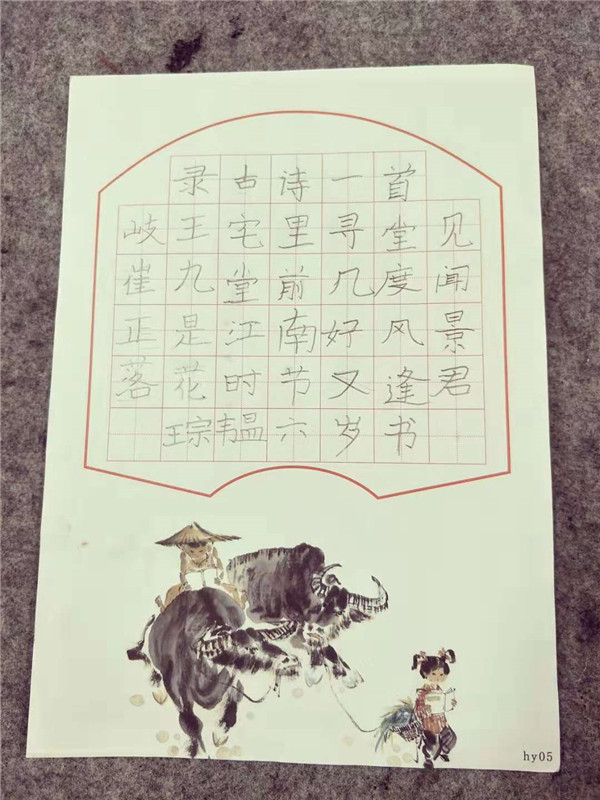 录古诗一首
岐王宅里寻堂见
崔九堂前几度闻
正是江南好风景
落花时节又逢君
王宗韫六岁书
hy05